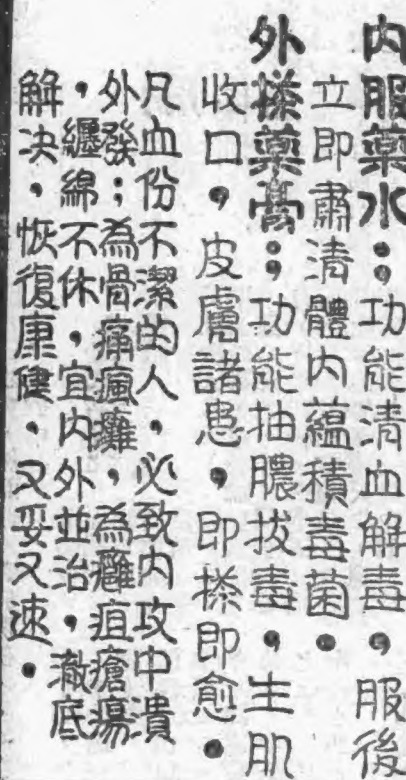 內服藥水：功能清血解毒，服後
立即肅清體內蘊積毒菌．
外搽藥膏：功能抽膿拔毒，生肌
收口，皮膚諸患，即搽即愈．
凡血份不潔的人，必致內攻中潰
外發；為骨痛瘋癱，為癰疽瘡瘍
，纏綿不休，宜內外並治，澈底
解決，恢復康健．又妥又速．